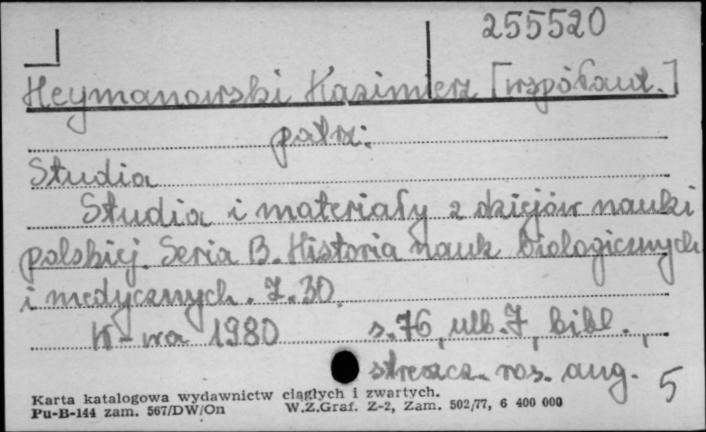 255520
Heymanowski Kazimierz [współaut.]
patrz:
Studia
Studia i materiały z dziejów nauki
polskiej. Seria B. Historia nauk biologicznych
i medycznych. Z. 30.
W-wa 1980 s. 76, nlb. 7, bibl.,
streszcz. ros. ang.
5
Karta katalogowa wydawnictw ciągłych i zwartych.
Pu-B-144 zam. 567/DW/On W.Z.Graf. Z-2, Zam. 502/77, 6 400 000